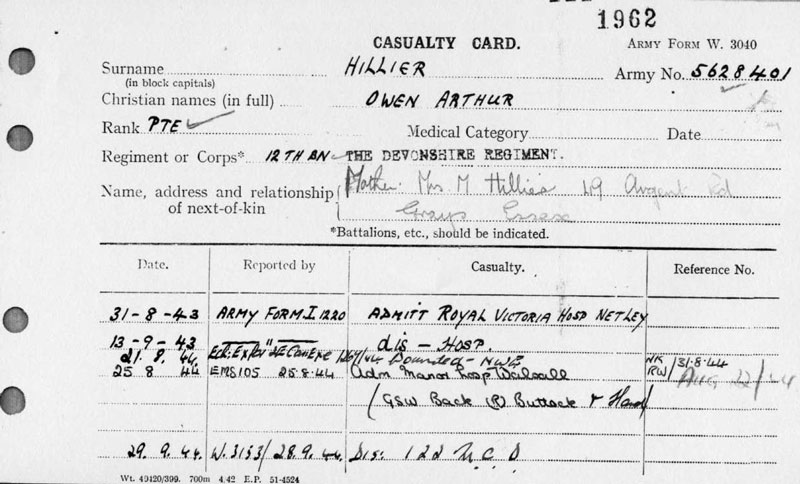 1962
CASUALTY CARD. ARMY FORM W. 3040
Surname HILLIER Army No. 5628401
(in block capitals)
Christian names (in full) OWEN ARTHUR
Rank PTE Medical Category Date
Regiment or Corps* 12TH BN THE DEVONSHIRE REGIMENT.
Name, address and relationship of next-of-kin Mother. Mrs M Hillier 49 Argent Rd
Grays Essex
*Battalions, etc., should be indicated.
Date. Reported by Casualty. Reference No.
31-8-43 ARMY FORM I 1220 ADMITT ROYAL VICTORIA HOSP NETLEY
13-9-43 " dis - HOSP.
21. 8. 44 Wounded - NWE NK 31.8.44
25 8 44 EMS105 25.8.44 Adm Manor Hosp Walsall RW/ AUG 22/44
(GSW Back (R) Buttock & Hand)
29. 9. 44. W.3153/28.9.44 Dis: 122 U.C.D
Wt. 49120/399. 700m 4/42 E.P. 51-4524